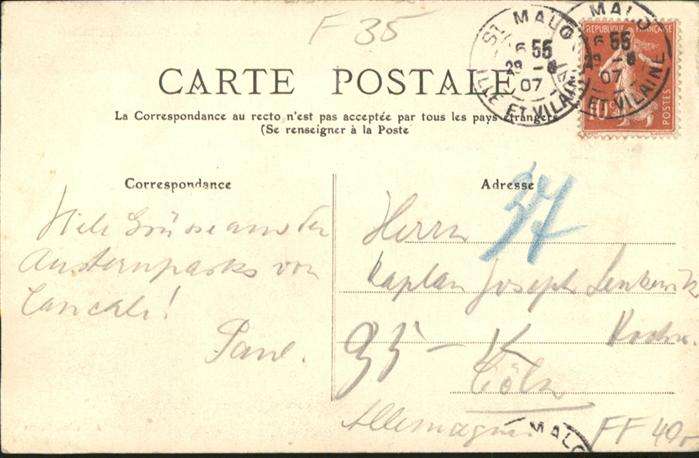 F 35
ST MALO
6 55
29 - 8
07
ILLE ET VILAINE
MALO
6 55
29 - 8
07
ET VILAINE
REPUBLIQUE FRANÇAISE
10
POSTES
CARTE POSTALE
La Correspondance au recto n'est pas acceptée par tous les pays étrangers
(Se renseigner à la Poste
Correspondance
Viele Grüsse aus den
Austernparks von
Cancale!
Paul.
Adresse
37
Herrn
Kaplan Joseph
95 -
Cöln
Allemagne
MALO
FF 40,-